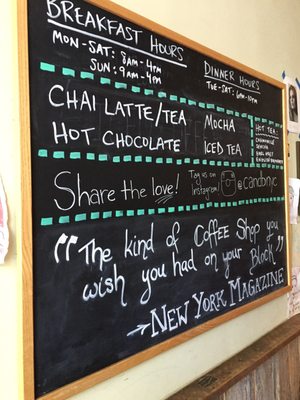 BREAKFAST HOURS
MON-SAT: 8AM-4PM
SUN: 9AM-4PM
DINNER HOURS
TUE-SAT: 6PM-10PM
CHAI LATTE/TEA
HOT CHOCOLATE
MOCHA
ICED TEA
HOT TEA:
Share the love!
Tag us on
Instagram!
"The kind of COFFEE Shop you
wish you had on your Block"
→NEW YORK MAGAZINE